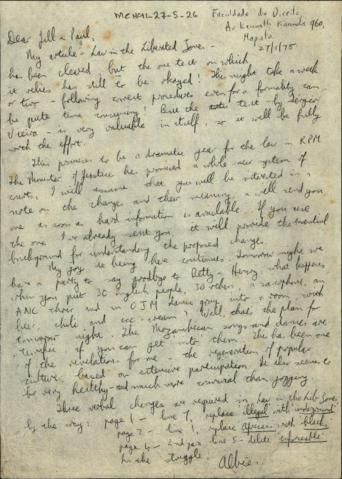 MCH01-27-5-26
Faculdade de Direito,
Av Kenneth Kaunda 960,
Maputo
27/1/75
Dear Jill + Paul,
My article - Law in the Liberated Zones -
has been cleared but the one text on which
it relies has still to be changed! This might take a week
or two - following correct procedures even for a formality can
be quite time consuming. But the text - by Sergio
Vieira - is very valuable in itself, so it will be fully
worth the effort.
This promises to be a dramatic year for the law in RPM
The Minister of Justice has promised a whole new system of
courts. I will assume that you will be interested in a
note on the changes and their meaning + will send you
one as soon as hard information is available. If you use
the one I've already sent you, it will provide the
background for understanding the proposed change.
My joy in being here continues. Tomorrow night we
have a party to say goodbye to Betty - what happens
when you put 30 people, 30 other, a saxophone, an
ANC choir and an OJM dance group into a room with
beer, chili and ice-cream? Well, that's the plan for
tomorrow night. The Mozambican songs and dances are
terrific if you can get into them. This has been one
of the revelations for me - the regeneration of popular
culture based on extensive participation. It also seems to
be very healthy and much more than jogging
Three verbal changes are required in Law in the Lib Zones
by the way: page 1 - line 7, replace illegal with underground
page 2 - line 1, replace African with black
page 4 - 2nd para line 5 - delete
In the struggle
Albie.